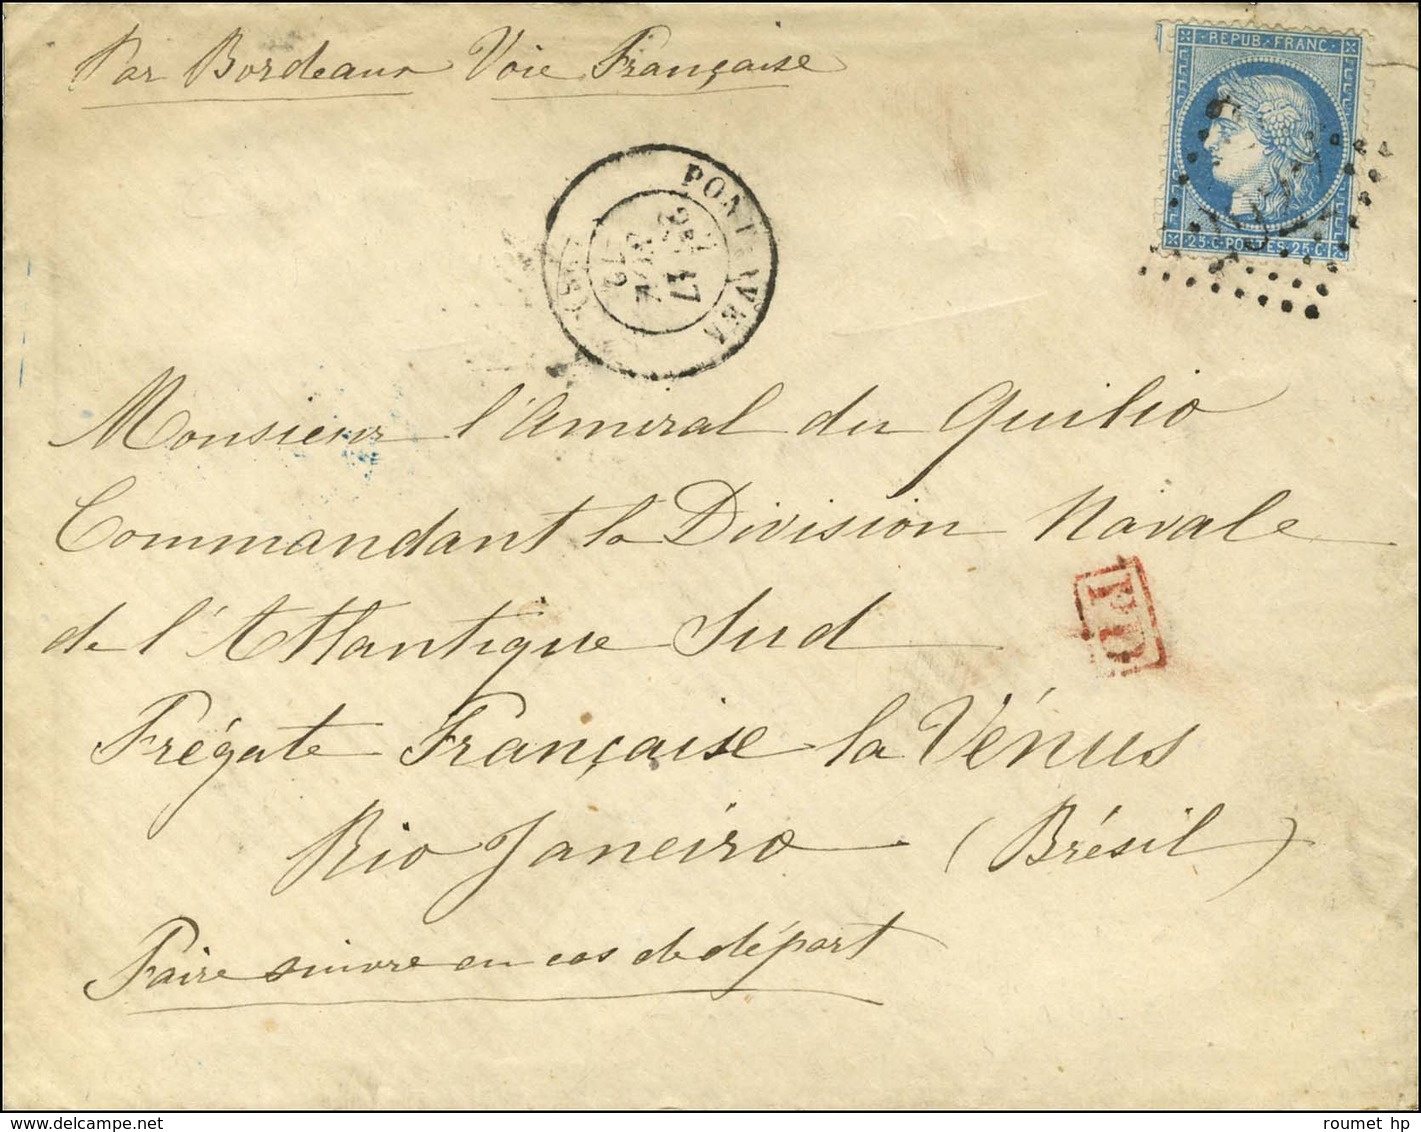 Par Bordeaux Voie Française
REPUB. FRANC.
25 C. POSTES 25 C.
17
72
Monsieur l'Amiral du Quilio
Commandant la Division Navale
de l'Atlantique Sud
PD
Frégate Française la Vénus
Rio Janeiro (Brésil)
Faire suivre en cas de départ
roumet hp